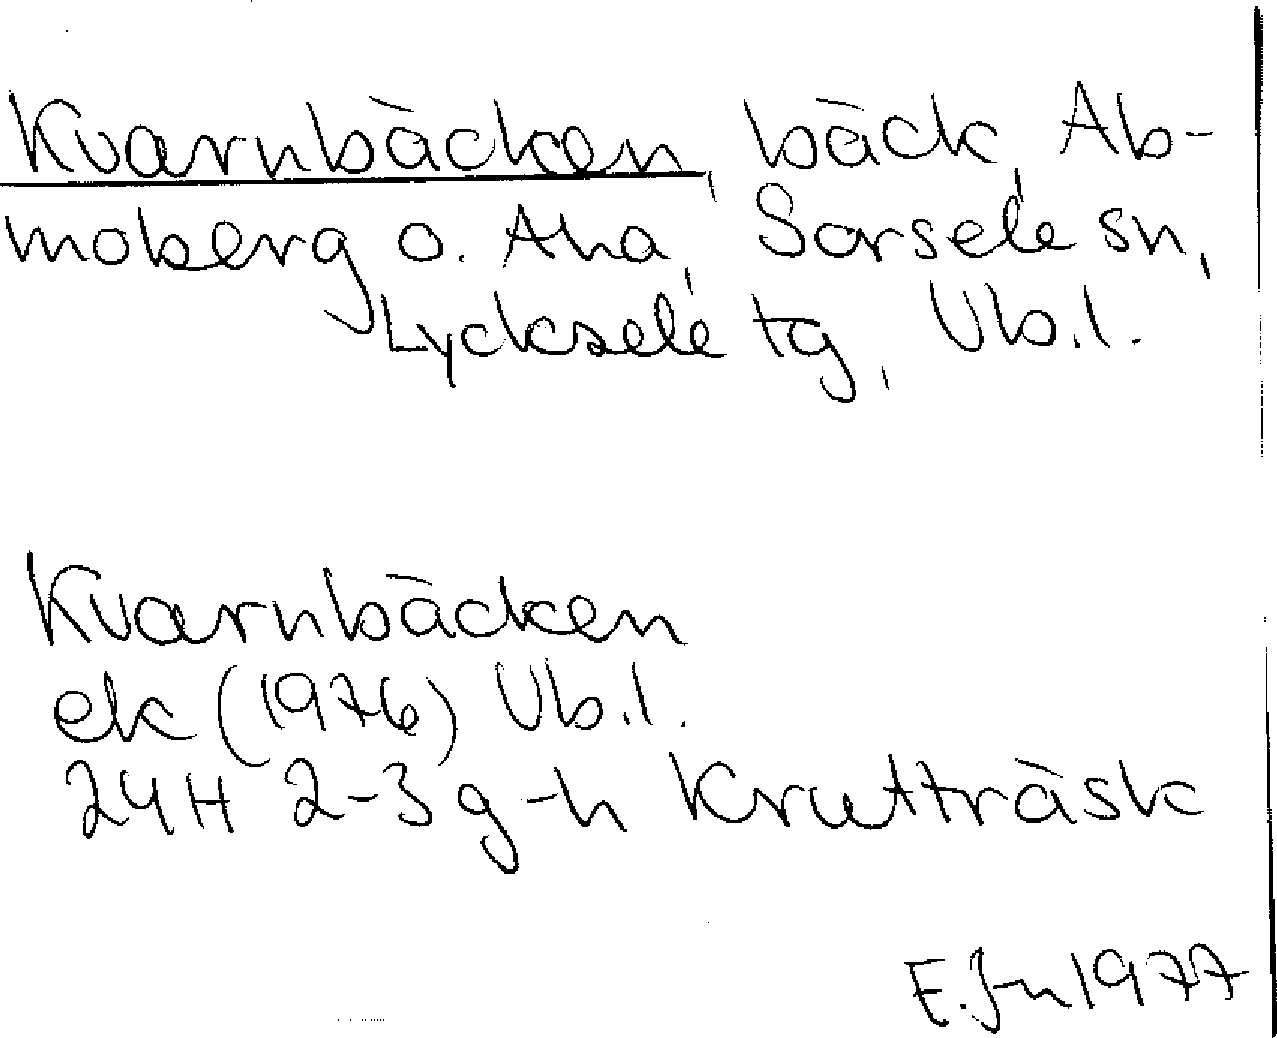 Kvarnbäcken, bäck Ab-
moberg o. Aha, Sorsele sn,
Lycksele tg, Vb.l.
Kvarnbäcken
ek (1976) Vb.l.
24H 2-3 g-h Krutträsk
E. Jn 1977